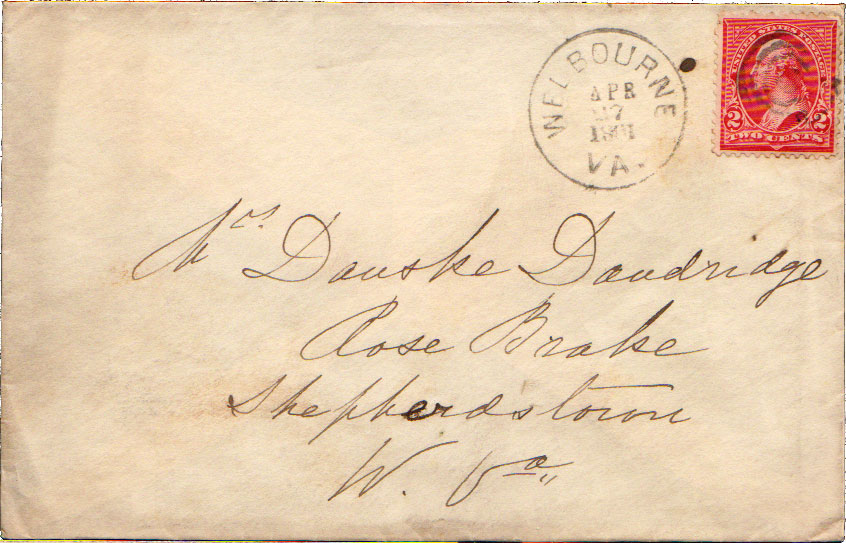 WELBOURNE
APR
27
VA.
UNITED STATES POSTAGE
2 2
TWO CENTS
Mrs Danske Dandridge
Rose Brake
Shepherdstown
W. Va